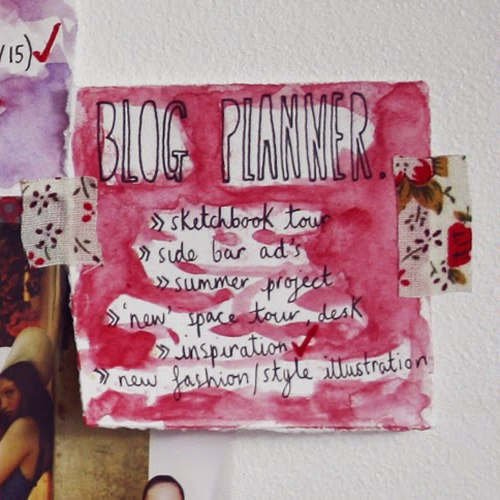 /15) ✓
BLOG PLANNER.
» sketchbook tour
» side bar ad's
» summer project
» 'new' space tour, desk
» inspiration ✓
» new fashion/style illustration